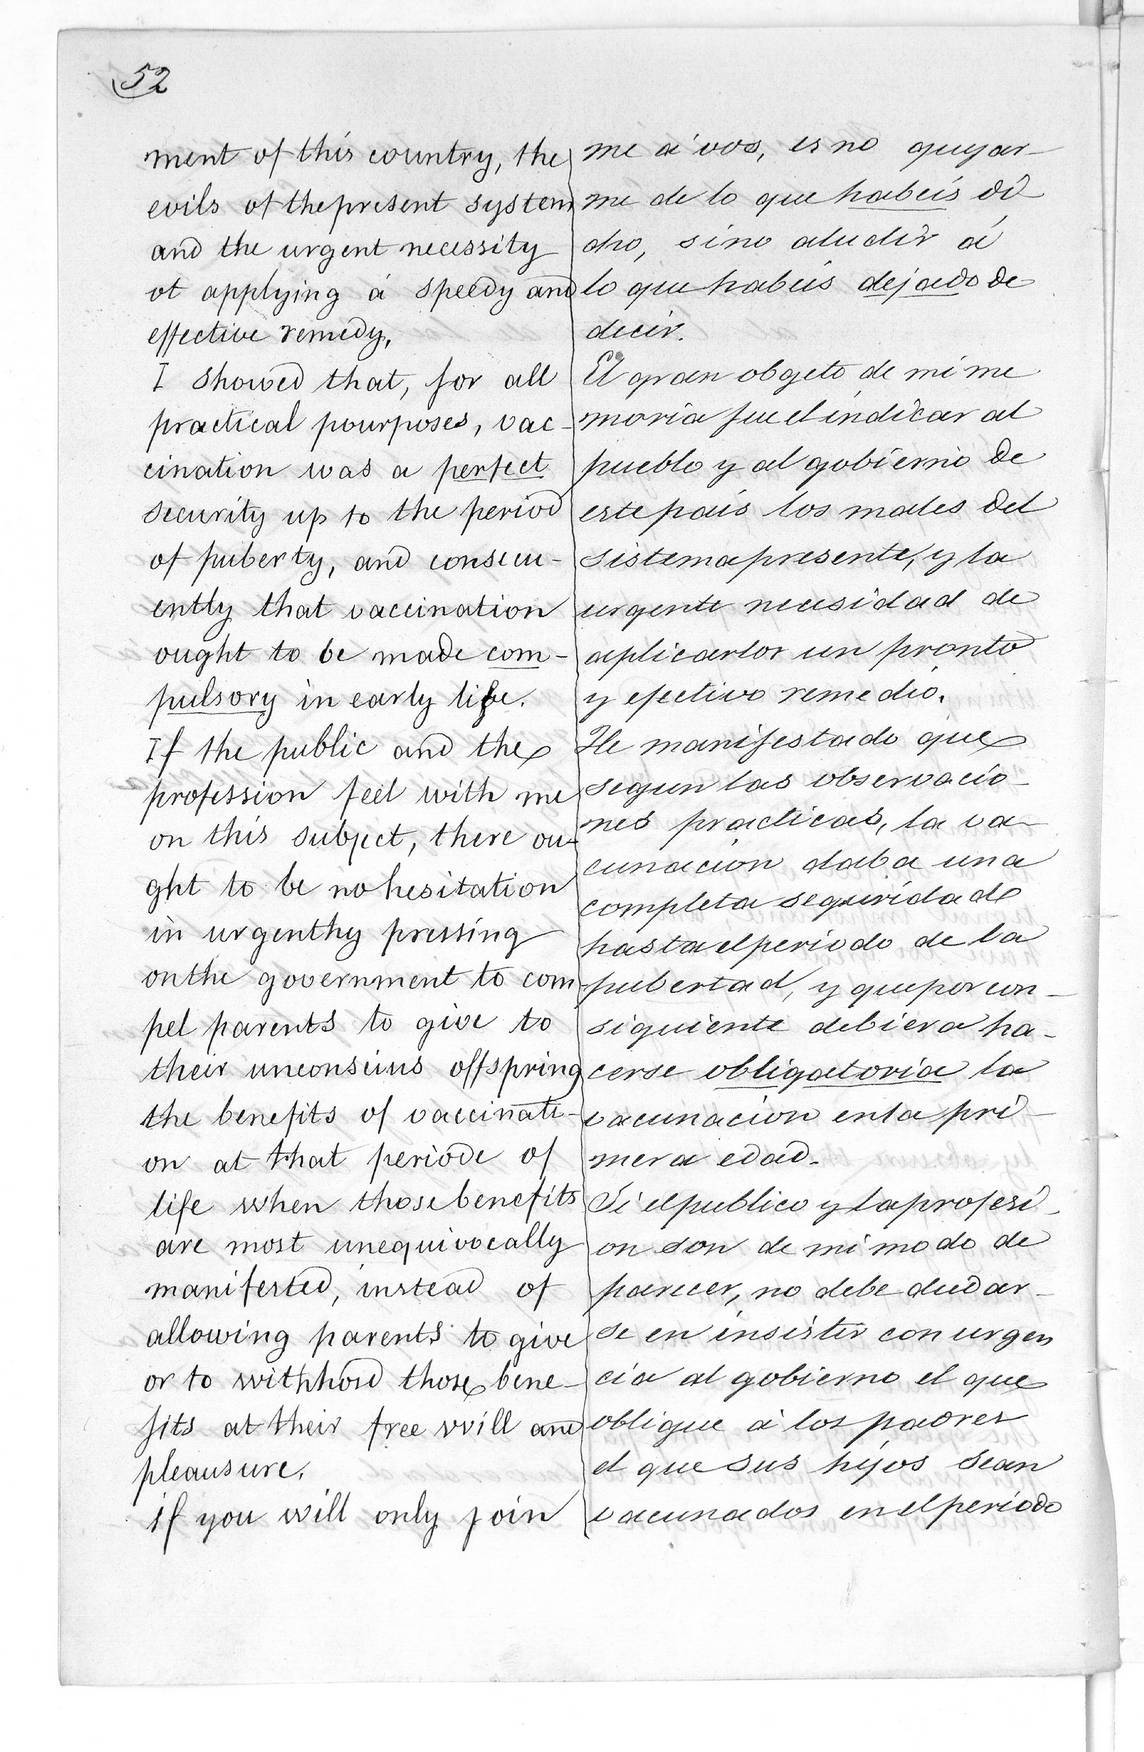 52
ment of this country, the
evils of the present system
and the urgent necessity
of applying á speedy and
effective remedy,
I showed that, for all
practical pourposes, vac-
cination was a perfect
security up to the period
of puberty, and consecu-
ently that vaccination
ought to be made com-
pulsory in early life.
If the public and the
profession feel with me
on this subject, there ou-
ght to be no hesitation
in urgenthy pressing
on the government to com
pel parents to give to
their unconsius offspring
the benefits of vaccinati-
on at that periode of
life when those benefits
are most unequivocally
manifested, instead of
allowing parents to give
or to withhord those bene-
fits at their free will and
pleausure.
if you will only join
me á vos, es no queyar-
me de lo que habeis di-
cho, sino aludir á
lo que habeis dejado de
decir.
El gran obgeto de mi me
moria fue el indicar al
pueblo y al gobierno de
este pais los males del
sistema presente, y la
urgente necesidad de
aplicarlos un pronto
y efectivo remedio.
He manifestado que
segun las observacio-
nes practicas, la va-
cunacion daba una
completa seguridad
hasta el periodo de la
pubertad, y que por con-
siguiente debiera ha-
cerse obligatoria la
vacunacion en la pri-
mera edad.
Si el publico y la profesi-
on son de mi modo de
parecer, no debe dudar-
se en insistir con urgen
cia al gobierno el que
obligue á los padres
el que sus hijos sean
vacunados en el periodo